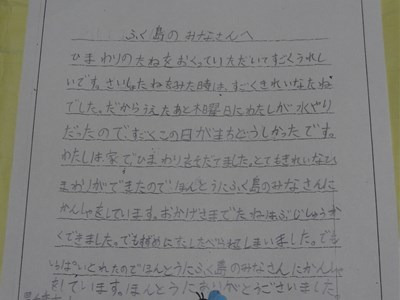 ふく島のみなさんへ
ひまわりのたねをおくっていただいてすごくうれし
いです。さいしょたねをみた時は、すごくきれいなたね
でした。だからうえたあと木曜日にわたしが水やり
だったのですごくこの日がまちどうしかったです。
わたしは家でひまわりをそだてました。とてもきれいなひ
まわりができたのでほんとうにふく島のみなさんに
かんしゃをしています。おかげさまでたねはぶじしゅうか
くできました。でも初めに
しまいました。でも
いっぱいとれたのでほんとうにふく島のみなさんにかんしゃ
をしています。ほんとうにありがとうございました